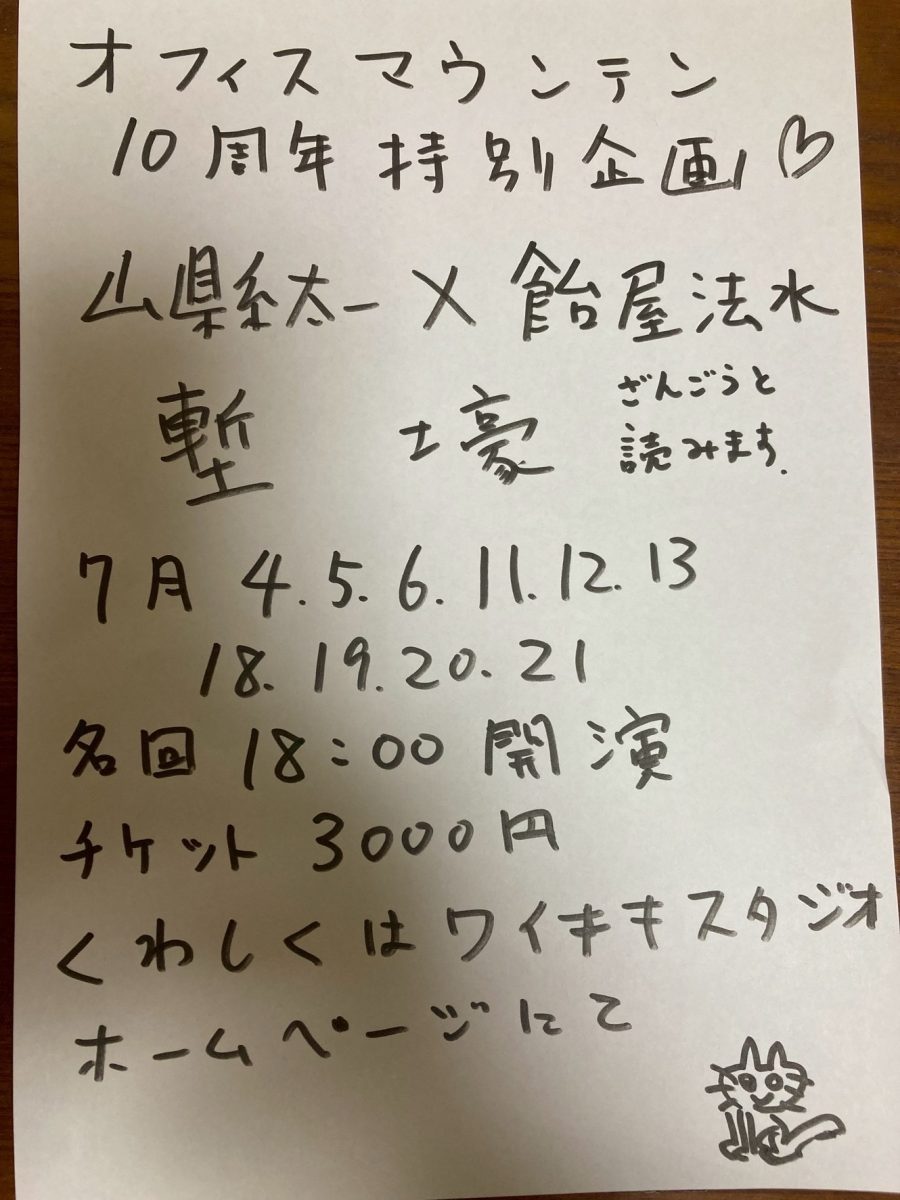 オフィスマウンテン
10周年特別企画♡
山県太一×飴屋法水
塹壕
ざんごうと
読みます.
7月 4.5.6.11.12.13
18.19.20.21
各回 18:00 開演
チケット 3000円
くわしくはワイキキスタジオ
ホームページにて